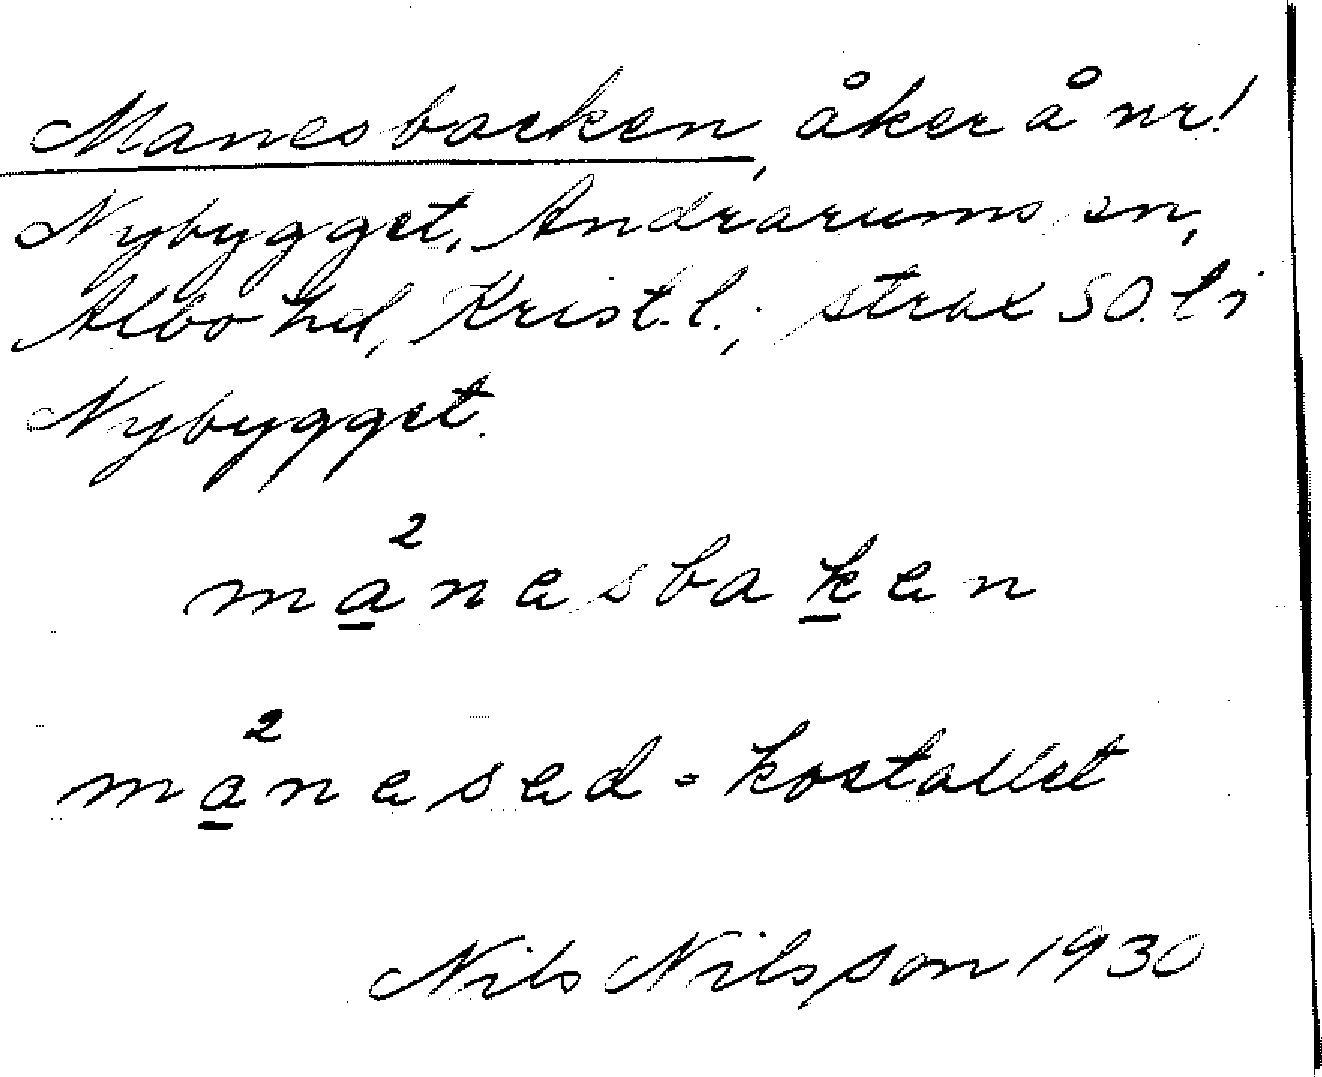 Manesbacken, åker å nr 1
Nybygget, Andrarums sn,
Albo hd, Krist. l.; strax SO. l i
Nybygget.
2
manesbaken
2
manesed = kostallet
Nils Nilsson 1930